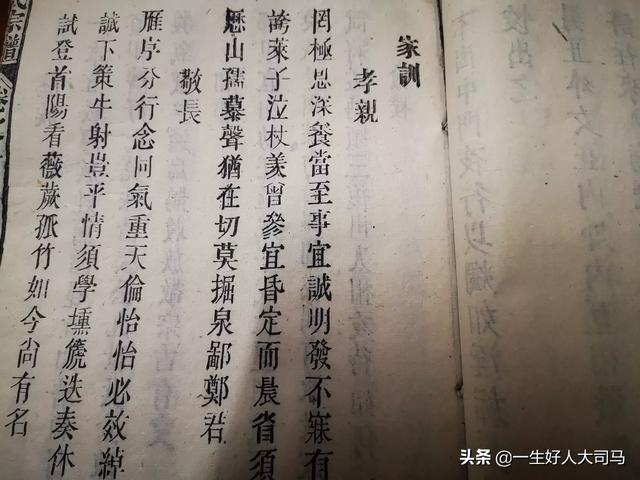 家訓
孝親
罔極恩深養當至事宜誠明發不寐有
萊子泣杖羙曾參宜昏定而晨省須
歷山孺慕聲猶在切莫掘泉鄙鄭君
敬長
雁序分行念同氣重天倫怡怡必效
誠下策牛射豈平情須學壎篪迭奏休
試登首陽看薇蕨孤竹如今尚有名
宗譜
頭条 @一生好人大司马